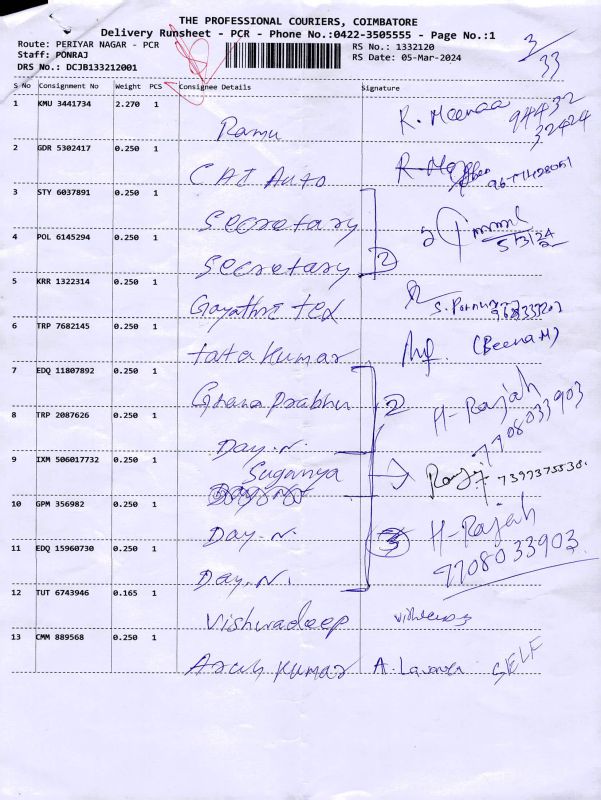 THE PROFESSIONAL COURIERS, COIMBATORE
Delivery Runsheet - PCR - Phone No.:0422-3505555 - Page No.:1
Route: PERIYAR NAGAR - PCR
RS No.: 1332120
Staff: PONRAJ
RS Date: 05-Mar-2024
DRS No.: DCJB133212001
3/33
S No Consignment No Weight PCS Consignee Details Signature
1 KMU 3441734 2.270 1 Ramu R. Meenaa 94432 32424
2 GDR 5302417 0.250 1 CAI Auto
3 STY 6037891 0.250 1 Secretary
4 POL 6145294 0.250 1 Secretary 2 5/3/24
5 KRR 1322314 0.250 1 Gayathri Tex
6 TRP 7682145 0.250 1 tata kumar (Beena M)
7 EDQ 11807892 0.250 1 Ghana Prabhu 2 H-Rajah 7708033903
8 TRP 2087626 0.250 1 Day.N.
9 IXM 506017732 0.250 1 Suganya 7397375538.
10 GPM 356982 0.250 1 Day.N. 3 H-Rajah 7708033903
11 EDQ 15960730 0.250 1 Day.N.
12 TUT 6743946 0.165 1 Vishwadeep
13 CMM 889568 0.250 1 Arun Kumar A. Lavanya SELF